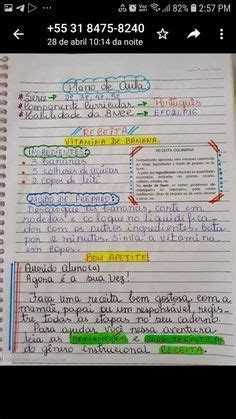 82% 2:57 PM
+55 31 8475-8240
28 de abril 10:14 da noite
Plano de Aula
* Série →
* Componente Curricular → Português
* Habilidade da BNCC → EF02LP16
RECEITA
VITAMINA DE BANANA
INGREDIENTES:
3 bananas
5 colheres de açúcar
2 copos de leite.
RECEITA CULINÁRIA
MODO DE PREPARO:
Descasque as bananas, corte em
rodelas e coloque no liquidifica-
dor com os outros ingredientes, bata
por 2 minutos. Sirva a vitamina
em copos.
BOU APETITE
Querido Aluno(a)
Agora é a sua Vez!
Faça uma receita bem gostosa, com a
mamãe, papai ou um responsável, regis-
tre todas as etapas no seu caderno.
Para ajudar você nessa aventura
leia as DEFINIÇÕES e CARACTERÍSTICAS
do gênero instrucional RECEITA.